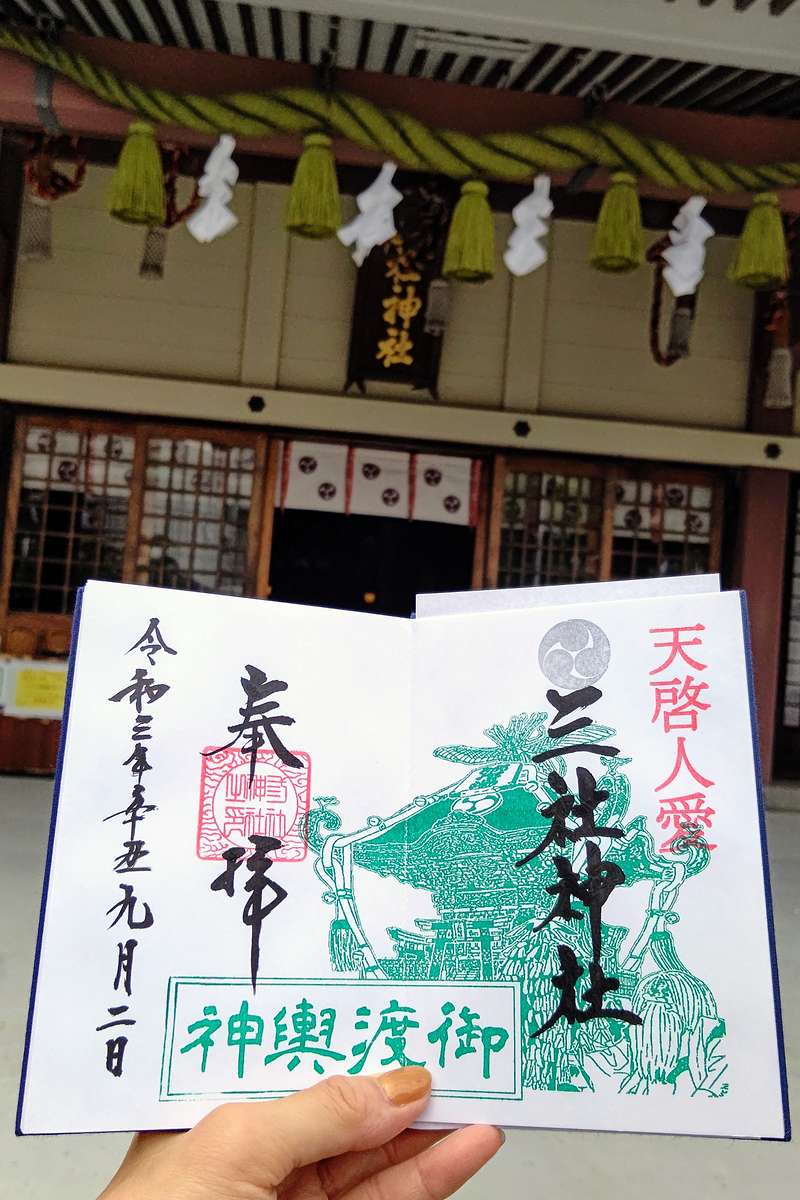 社神社
天啓人愛
三社神社
奉拝
令和三年辛丑九月二日
神輿渡御